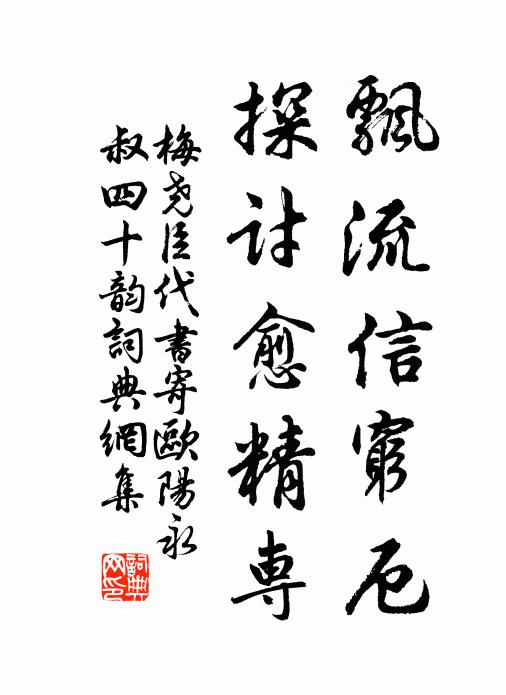 飄流信窮厄
探討愈精専
梅堯臣代書寄歐陽永
叔四十韵詞典網集
詞典
网印